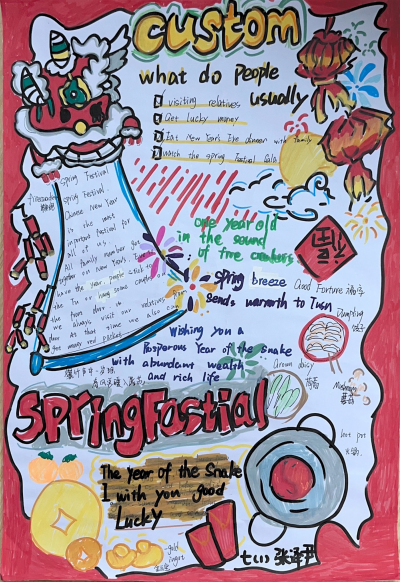 custom
what do people
usually
visiting relatives
Get lucky money
Eat New Year's Eve dinner with family
Watch the spring Festival Gala
Spring Festival
firecracker
鞭炮
spring Festival
Chinese New Year
is the most
important festival for
all of us.
All family member get
together on new Year's Eve
have the year, people stick
the Fu or hang some
the front door
we always visit our relatives
At that time we also can
get many red packet
one year old
in the sound
of fire crackers
福
spring breeze
sends warmth to Tusu
Good Fortune 福字
Dumpling
饺子
Wishing you a
Posperous Year of the snake
with abundant wealth
and rich life
爆竹声中一岁除
春风送暖入屠苏
Crown daisy
茼蒿
Mushroom
蘑菇
hot pot
火锅
SpringFastial
The year of the Snake
I with you good
Lucky
gold
ingot
金元宝
七(1)